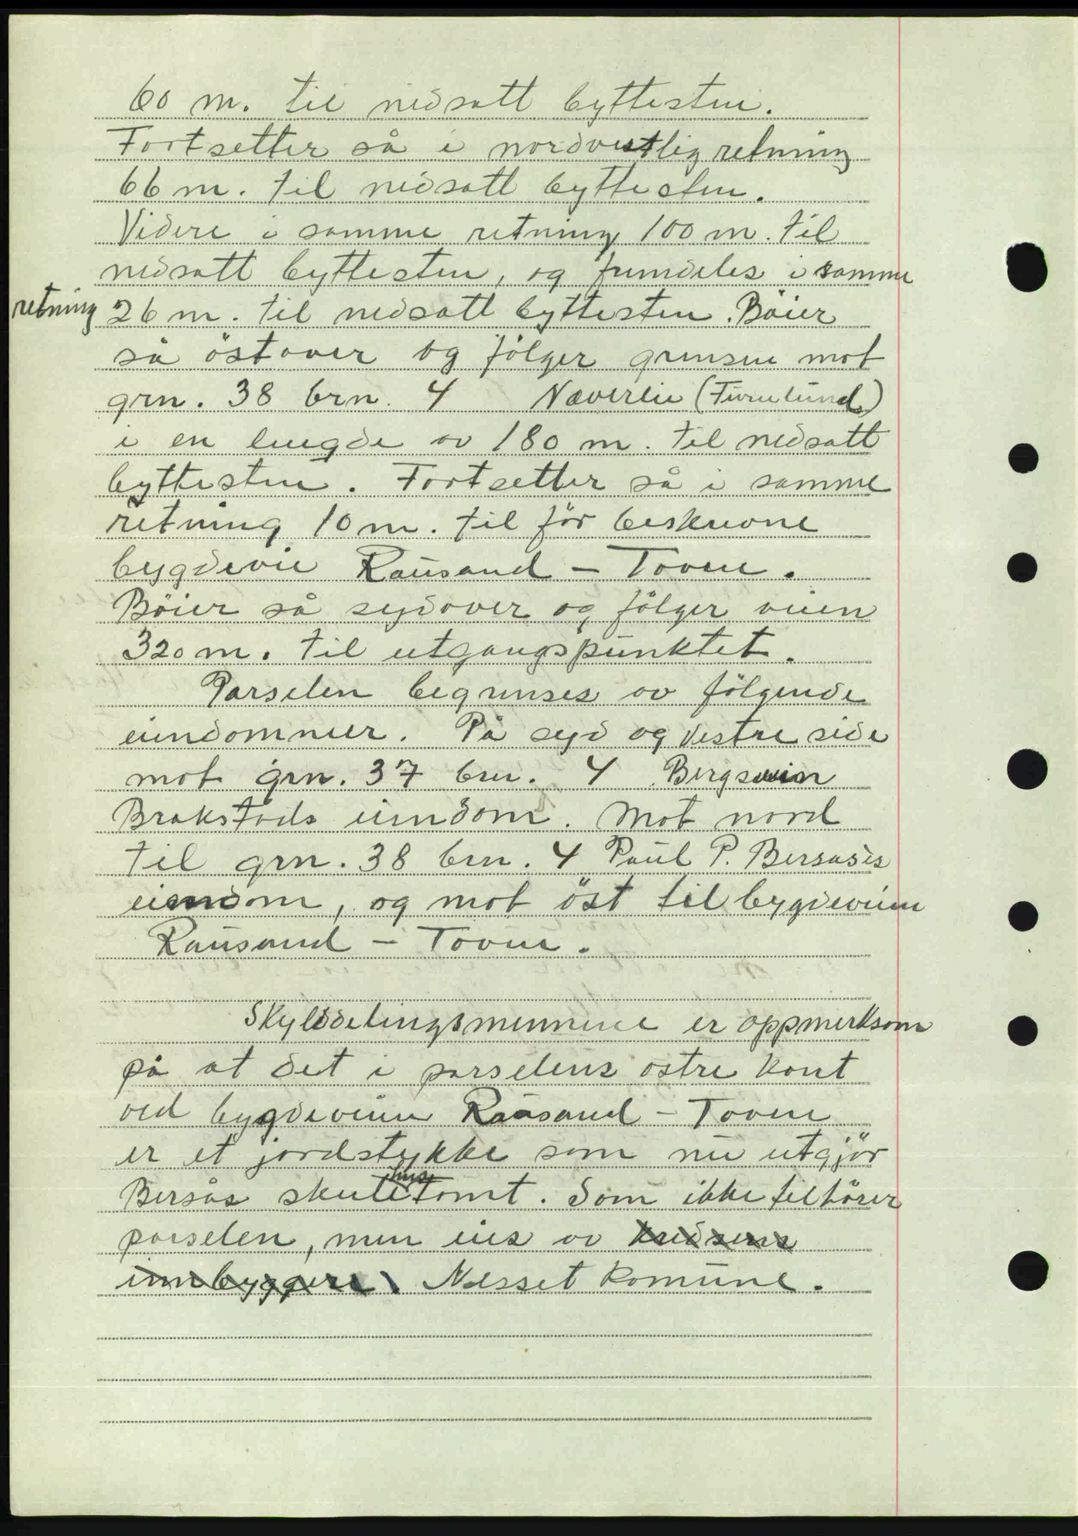 60 m. til nedsatt byttesten.
Fortsetter så i nordvestlig retning
66 m. til nedsatt byttesten.
Videre i samme retning 100 m. til
nedsatt byttesten, og fremdeles i samme
retning 26 m. til nedsatt byttesten. Böier
så östover og fölger grensen mot
grn. 38 brn. 4 Næverlie (Furulund)
i en lengde av 180 m. til nedsatt
byttesten. Fortsetter så i samme
retning 10 m. til för beskrevne
bygdevei Rausand - Toven.
Böier så sydover og fölger veien
320 m. til utgangspunktet.
Parselen begrenses av fölgende
eiendommer. På syd og vestre side
mot grn. 37 brn. 4 Bergsvein
Brakstads eiendom. Mot nord
til grn. 38 brn. 4 Paul P. Bersåses
eiendom, og mot öst til bygdeveien
Rausand - Toven.
Skylddelingsmennene er oppmerksom
på at det i parselens östre kant
ved bygdeveien Rausand - Toven
er et jordstykke som nu utgjör
Bersås skulehustomt. Som ikke tilhörer
parselen, men eies av kredsens
innbyggere, Nesset komune.